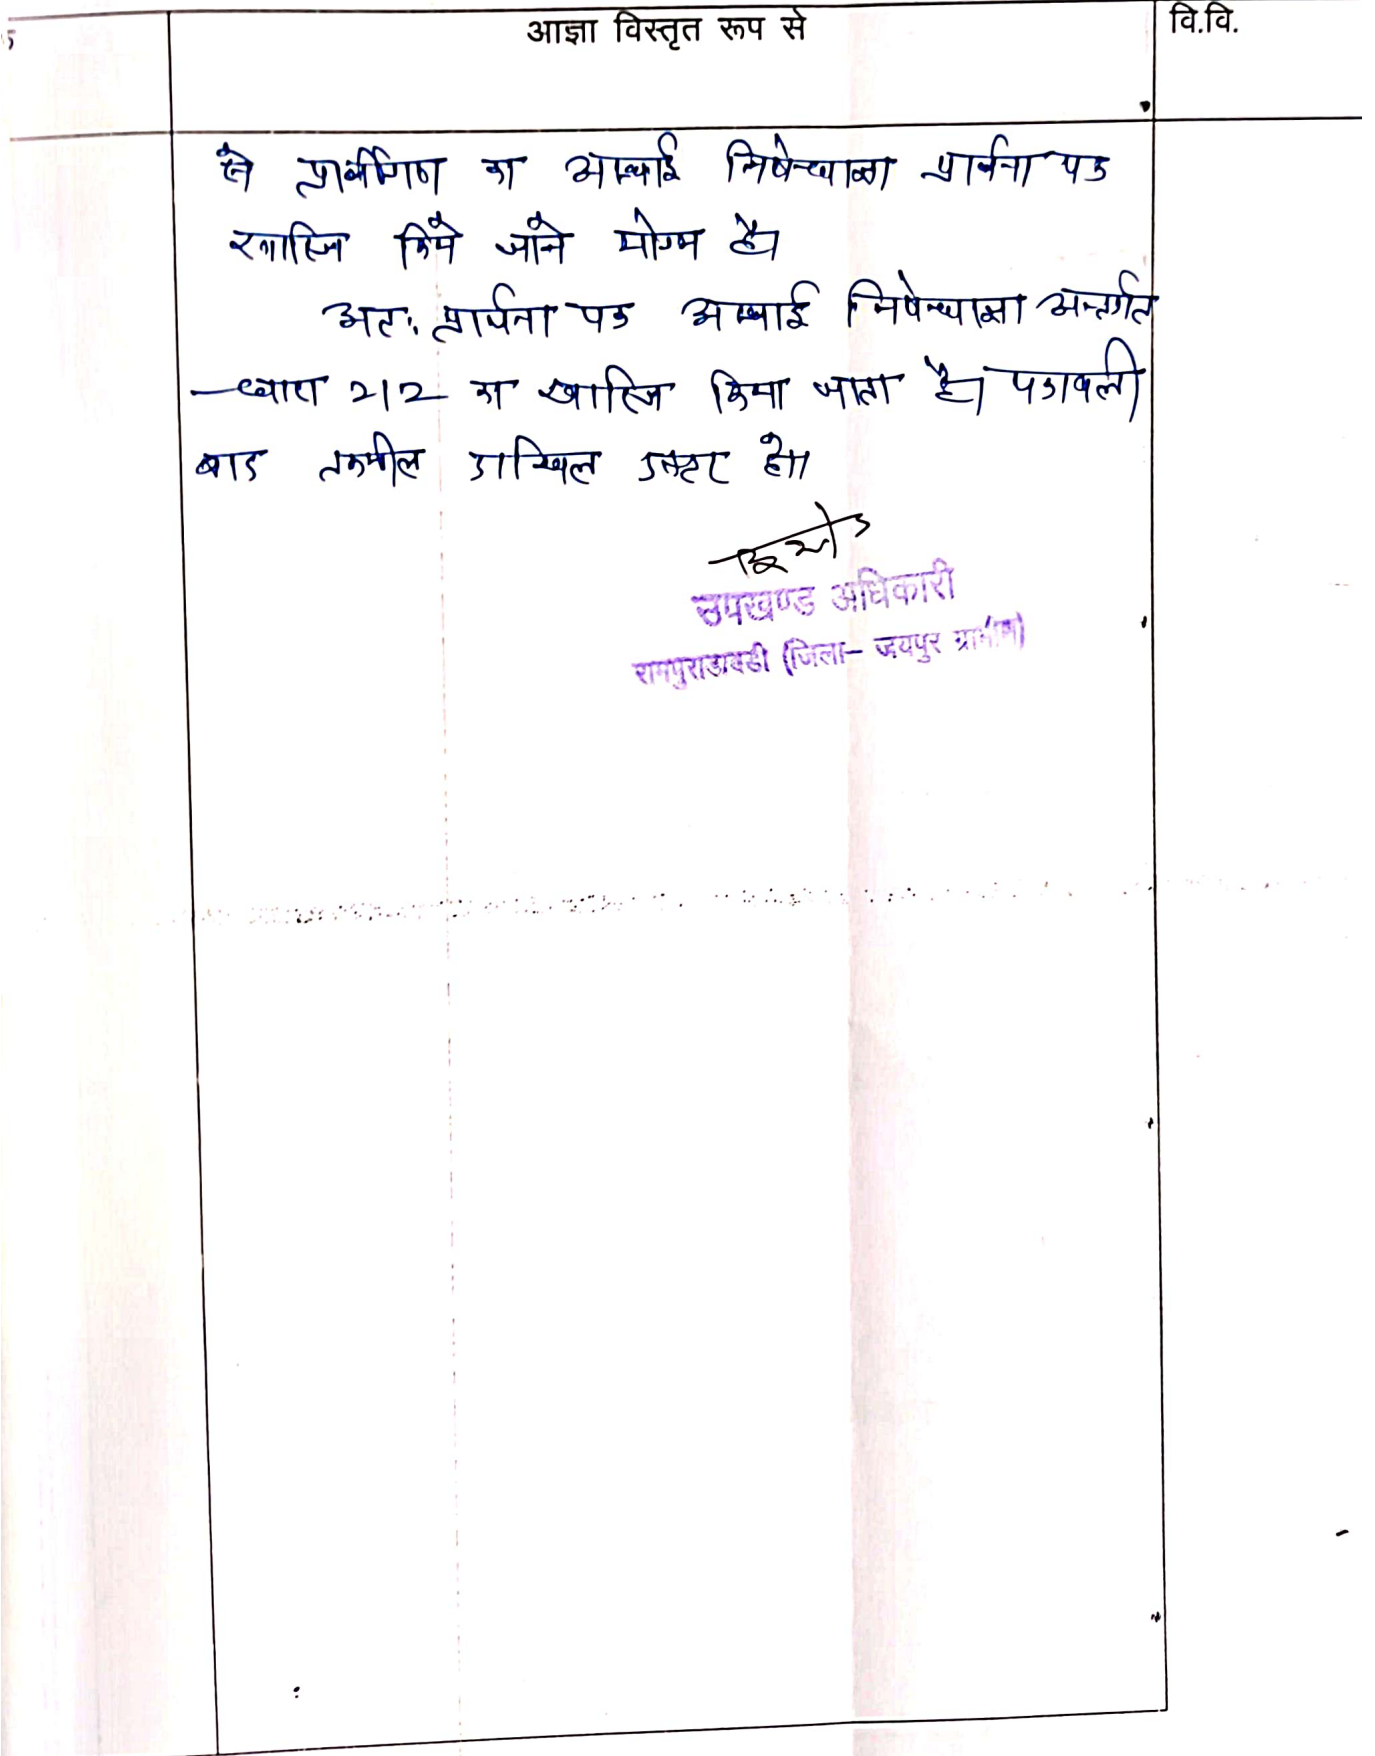 आज्ञा विस्तृत रूप से
वि.वि.
से प्रार्थीगण का अस्थाई निषेधाज्ञा प्रार्थना पत्र
खारिज किये जाने योग्य है।
अतः प्रार्थना पत्र अस्थाई निषेधाज्ञा अन्तर्गत
धारा 212 का खारिज किया जाता है। पत्रावली
बाद तकमील दाखिल दफ्तर हो।
उपखण्ड अधिकारी
रामपुराडाबडी (जिला- जयपुर ग्रामीण)